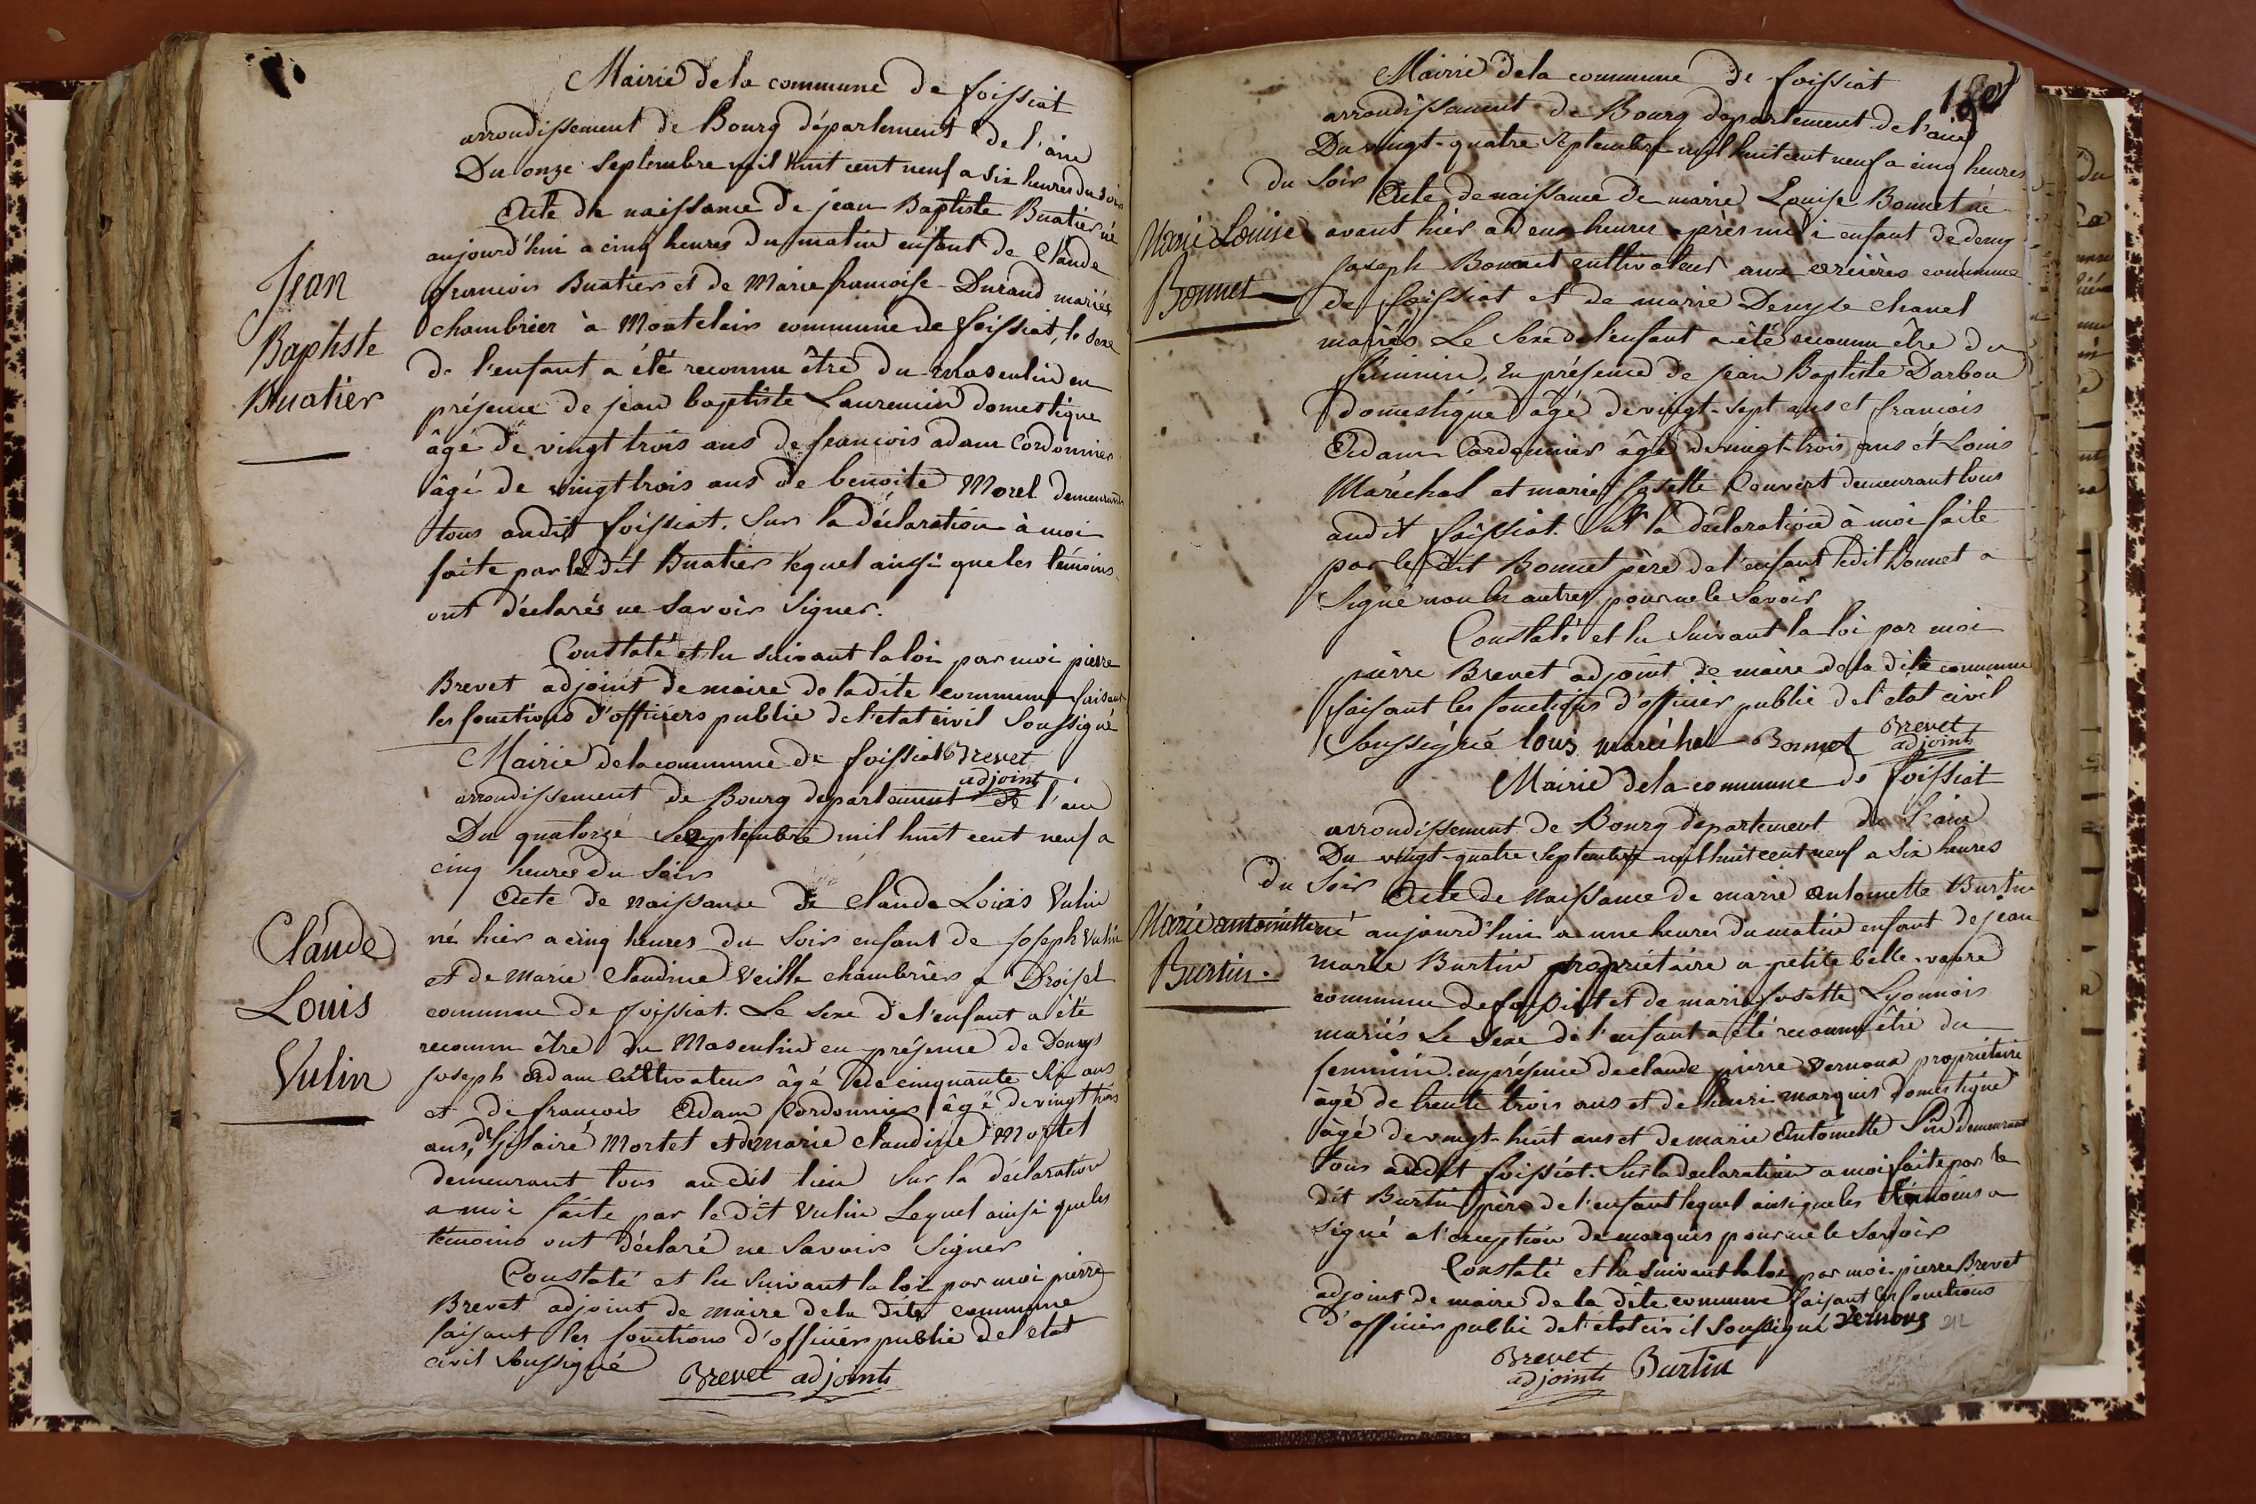 Mairie de la commune de foissiat
arrondissement de Bourg département de l'ain
Du onze Septembre mil huit cent neuf a Six heures du Soir
Acte de naissance de jean Baptiste Buatier né
aujourd'hui a cinq heures du matin enfant de Claude
francois Buatier et de Marie francoise Durand mariés
Jean
chambrier à Montclair commune de foissiat, le Sexe
Baptiste
de l'enfant a été reconnu être du Masculin en
Buatier
présence de jean baptiste Laurencin domestique
âgé de vingt trois ans de francois adam Cordonnier
âgé de vingt trois ans de benoite Morel demeurants
tous audit foissiat. Sur la déclaration à moi
faite par le dit Buatier lequel ainsi que les témoins
ont déclarés ne Savoir Signer.
Constaté et lu suivant la loi par moi pierre
Brevet adjoint de maire de la dite commune faisant
les fonctions d'officiers public de l'etat civil Soussigné
Mairie de la commune de foissiat Brevet
adjoint
arrondissement de Bourg departement de l'ain
Du quatorze Septembre mil huit cent neuf a
cinq heures du Soir
Acte de naissance de Claude Louis Vulin
Claude
né hier a cinq heures du Soir enfant de Joseph Vulin
et de Marie Claudine Veille chambriers a
Louis
commune de foissiat. Le Sexe de l'enfant a été
reconnu être du Masculin en présence de Denys
Vulin
Joseph Adam Cultivateur âgé de cinquante Six ans
et de francois Adam Cordonnier âgé de vingt trois
ans, d'hilaire Mortel et de marie claudine Mortel
demeurant tous audit lieu Sur la déclaration
a moi faite par le dit Vulin Lequel ainsi que les
témoins ont déclaré ne Savoir Signer
Constaté et lu Suivant la loi par moi pierre
Brevet adjoint de maire de la dite commune
faisant les fonctions d'officier public de l'etat
civil Soussigné
Brevet adjoint
Mairie de la commune de foissiat
arrondissement de Bourg departement de l'ain
Du vingt-quatre Septembre mil huit cent neuf a cinq heures
du Soir
Acte de naissance de marie Louise Bonnet né
Marie Louise
avant hier a deux heures après midi enfant de denis
Bonnet
Joseph Bonnet cultivateur aux commune
de foissiat et de marie Denyse Chanel
mariés Le Sexe de l'enfant a été reconnu être du
féminin, En présence de jean Baptiste Darbon
domestique âgé de vingt-sept ans et francois
Adam Cordonnier âgé de vingt-trois ans et Louis
Maréchal et marie Josette Convert demeurant tous
audit foissiat. Sur la déclaration à moi faite
par le dit Bonnet père de l'enfant ledit Bonnet a
Signé non les autres pour ne le Savoir
Constaté et lu Suivant la loi par moi
pierre Brevet adjoint de maire de la dite commune
faisant les fonctions d'officier public de l'etat civil
Soussigné louis maréchal Bonnet Brevet
adjoint
Mairie de la commune de foissiat
arrondissement de Bourg departement de l'ain
Du vingt-quatre Septembre mil huit cent neuf a Six heures
du Soir
Acte de Naissance de marie Antoinette Burtin
Marie antoinette
né aujourd'hui a une heures du matin enfant de jean
Burtin.
marie Burtin propriétaire a petite belle-
commune de foissiat et de marie josette Lyonnois
mariés Le Sexe de l'enfant a été reconnu être du
feminin. en présence de claude pierre Vernoux propriétaire
âgé de trente trois ans et de henri marquis domestique
âgé de vingt-huit ans et de marie Antoinette demeurant
tous audit foissiat. Sur la déclaration a moi faite par le
dit Burtin père de l'enfant lequel ainsi que les témoins a
signé a l'exception de marquis pour ne le Savoir
Constaté et lu suivant la loi par moi pierre Brevet
adjoint de maire de la dite commune faisant les fonctions
d'officier public de l'etat civil Soussigné vernoux 212
Brevet
adjoint Burtin